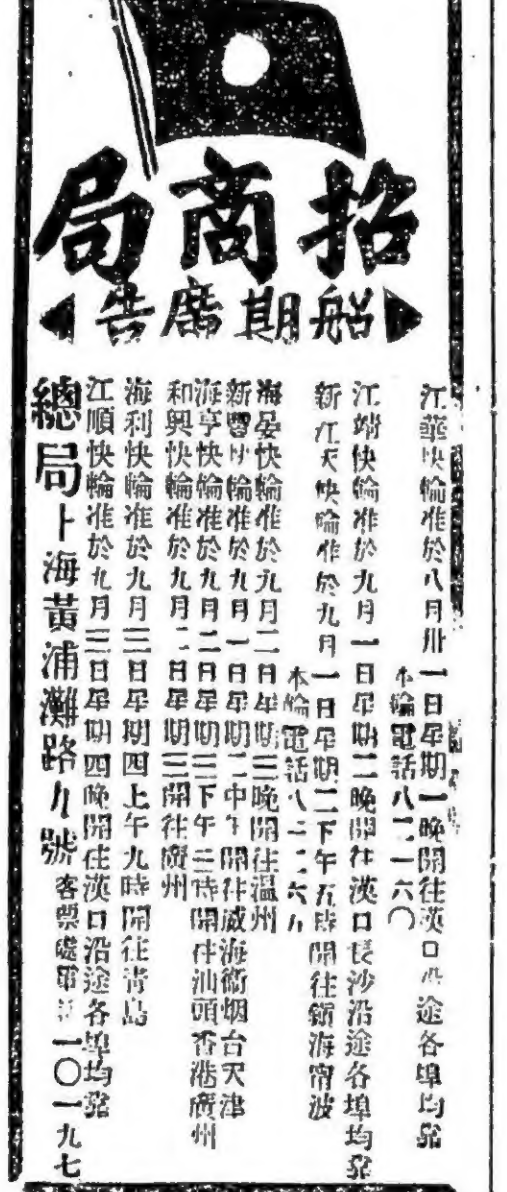 招商局
船期廣告
江華快輪准於八月卅一日星期一晚開往漢口沿途各埠均靠
本輪電話八二一六〇
江靖快輪准於九月一日星期二晚開往漢口長沙沿途各埠均靠
新江天快輪准於九月一日星期二下午五時開往鎮海甯波
本輪電話八二二六九
海晏快輪准於九月二日星期三晚開往温州
新豐快輪准於九月一日星期二中午開往威海衛烟台天津
海亨快輪准於九月二日星期三下午三時開往汕頭香港廣州
和興快輪准於九月二日星期三開往廣州
海利快輪准於九月三日星期四上午九時開往青島
江順快輪准於九月三日星期四晚開往漢口沿途各埠均靠
總局上海黃浦灘路九號客票處電話一〇一九七